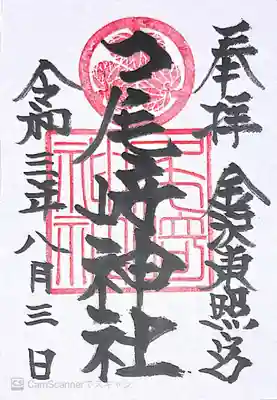 奉拝
金沢東照宮
尾﨑神社
令和三年八月三日
CS CamScannerでスキャン